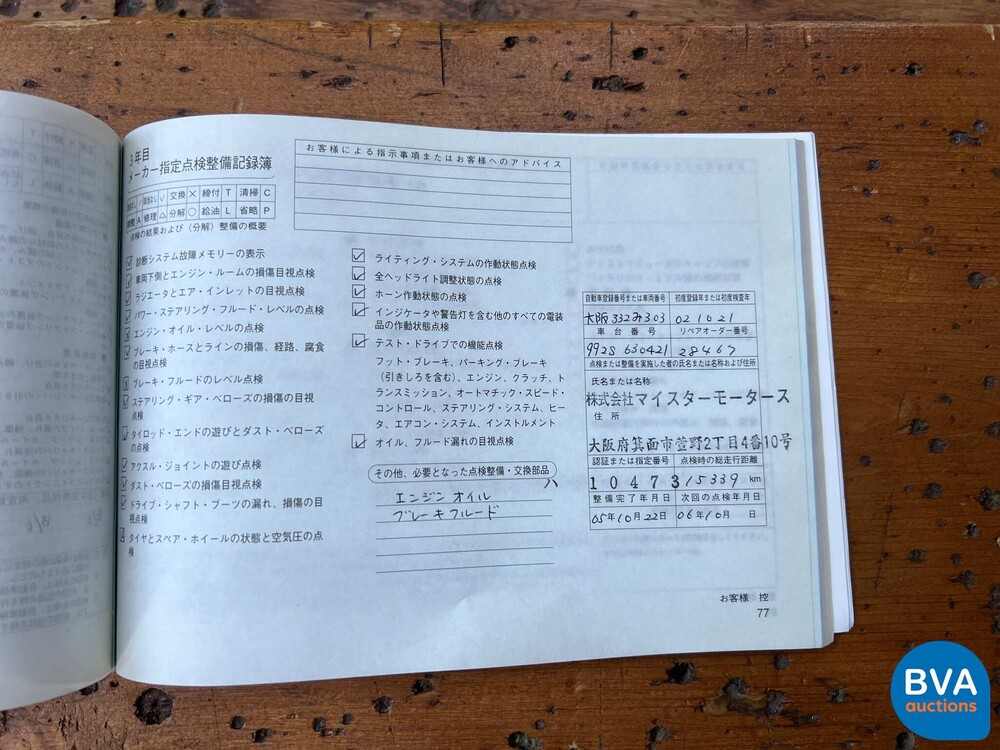 3年目
メーカー指定点検整備記録簿
交換 × 締付 T 清掃 C
調整 A 修理 △ 分解 ○ 給油 L 省略 P
点検の結果及び（分解）整備の概要
お客様による指示事項またはお客様へのアドバイス
診断システム故障メモリーの表示
車両下側とエンジン・ルームの損傷目視点検
ラジエータとエア・インレットの目視点検
パワー・ステアリング・フルード・レベルの点検
エンジン・オイル・レベルの点検
ブレーキ・ホースとラインの損傷、経路、腐食
の目視点検
ブレーキ・フルードのレベル点検
ステアリング・ギア・ベローズの損傷の目視
点検
タイロッド・エンドの遊びとダスト・ベローズ
の点検
アクスル・ジョイントの遊び点検
ダスト・ベローズの損傷目視点検
ドライブ・シャフト・ブーツの漏れ、損傷の目
視点検
タイヤとスペア・ホイールの状態と空気圧の点
検
ライティング・システムの作動状態点検
全ヘッドライト調整状態の点検
ホーン作動状態の点検
インジケータや警告灯を含む他のすべての電装
品の作動状態点検
テスト・ドライブでの機能点検
フット・ブレーキ、パーキング・ブレーキ
（引きしろを含む）、エンジン、クラッチ、ト
ランスミッション、オートマチック・スピード・
コントロール、ステアリング・システム、ヒー
タ、エアコン・システム、インストルメント
オイル、フルード漏れの目視点検
その他、必要となった点検整備・交換部品
エンジンオイル
ブレーキフルード
自動車登録番号または車両番号 初度登録年または初度検査年
大阪332み303 021021
車台番号 リペアオーダー番号
992S 630421 28467
点検または整備を実施した者の氏名または名称および住所
氏名または名称
株式会社マイスターモータース
住所
大阪府箕面市萱野2丁目4番10号
認証または指定番号 点検時の総走行距離
10473 15339 km
整備完了年月日 次回の点検年月日
05年10月22日 06年10月 日
お客様 控
77
BVA
auctions